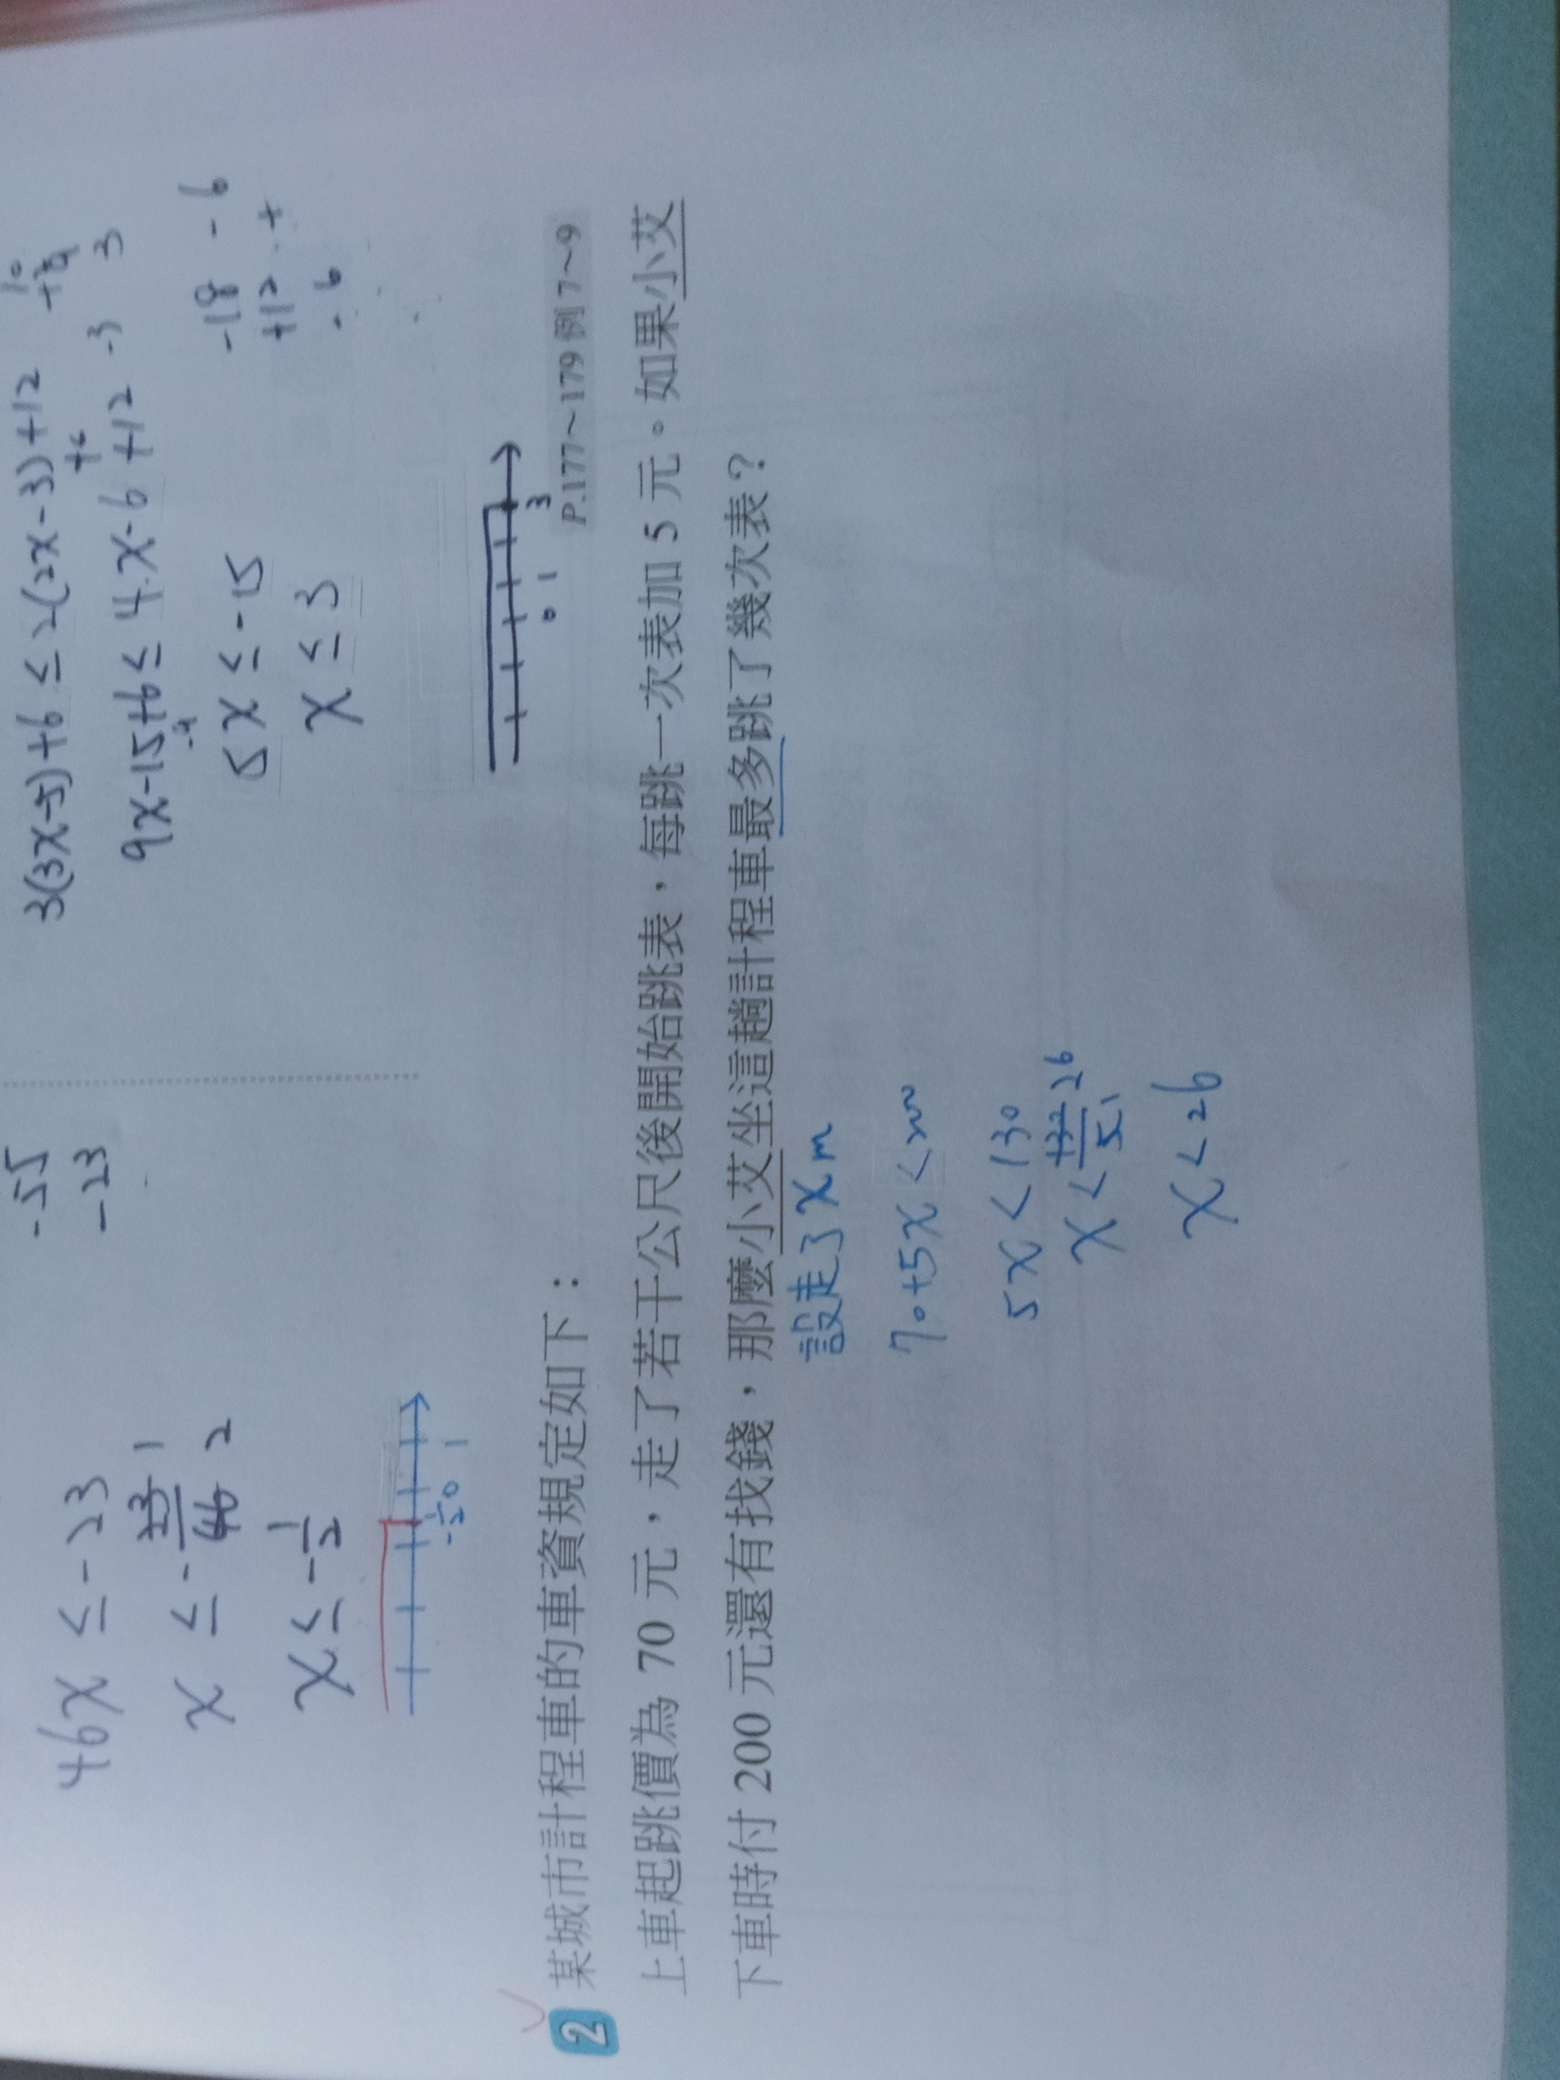 -55
-23
46x ≤ -23
x ≤ -23/46 1 2
x ≤ -1/2
-1/2 0 1
3(3x-5)+6 ≤ 2(2x-3)+12
9x-15+6 ≤ 4x-6+12 -3 3
-9 +6
5x ≤ -15
x ≤ 3
-18 -6
+12 +
-6
0 1 3
P.177~179 例 7~9
2 某城市計程車的車資規定如下：
上車起跳價為 70 元，走了若干公尺後開始跳表，每跳一次表加 5 元。如果小艾
下車時付 200 元還有找錢，那麼小艾坐這趟計程車最多跳了幾次表？
設走了xm
70+5x<200
5x<130
x<130/5 26 1
x<26